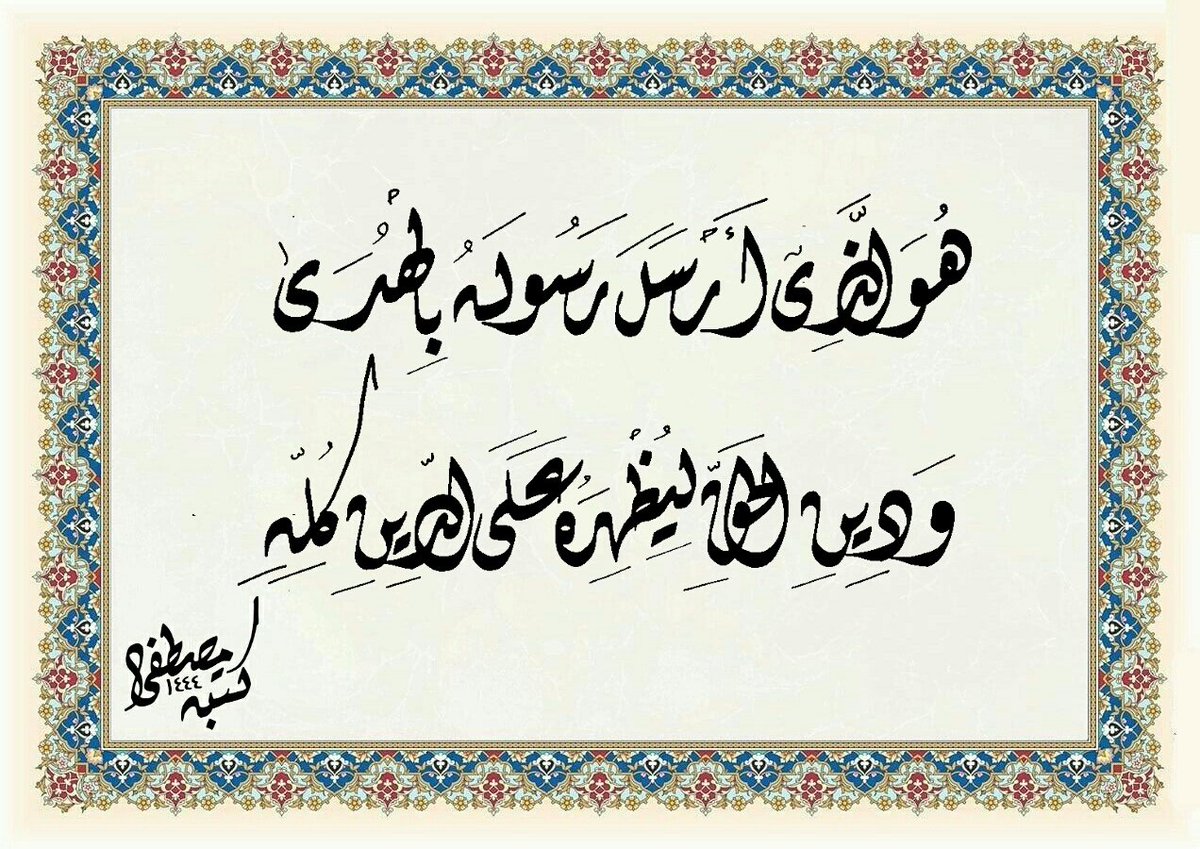 هُوَ الَّذِىٓ أَرْسَلَ رَسُولَهُ بِالْهُدَىٰ
وَدِينِ الْحَقِّ لِيُظْهِرَهُ عَلَى الدِّينِ كُلِّهِ
كتبه مصطفى
١٤٤٤